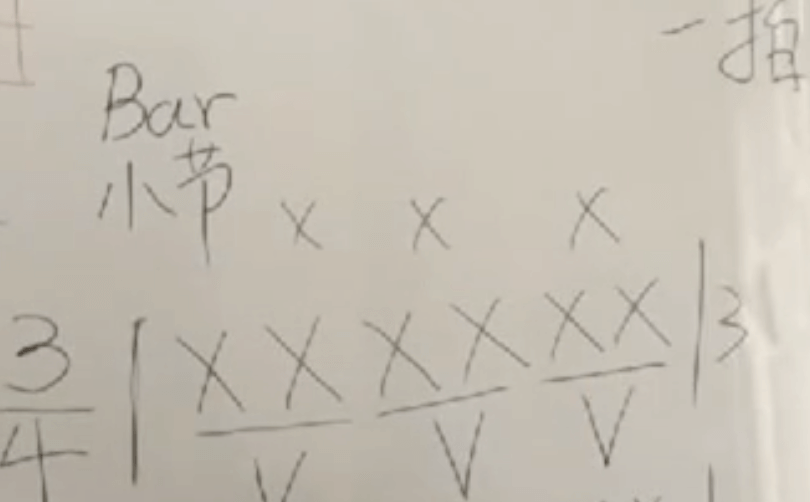 一拍
Bar
小节
X X X
3/4 | X X X X X X | 3
V V V